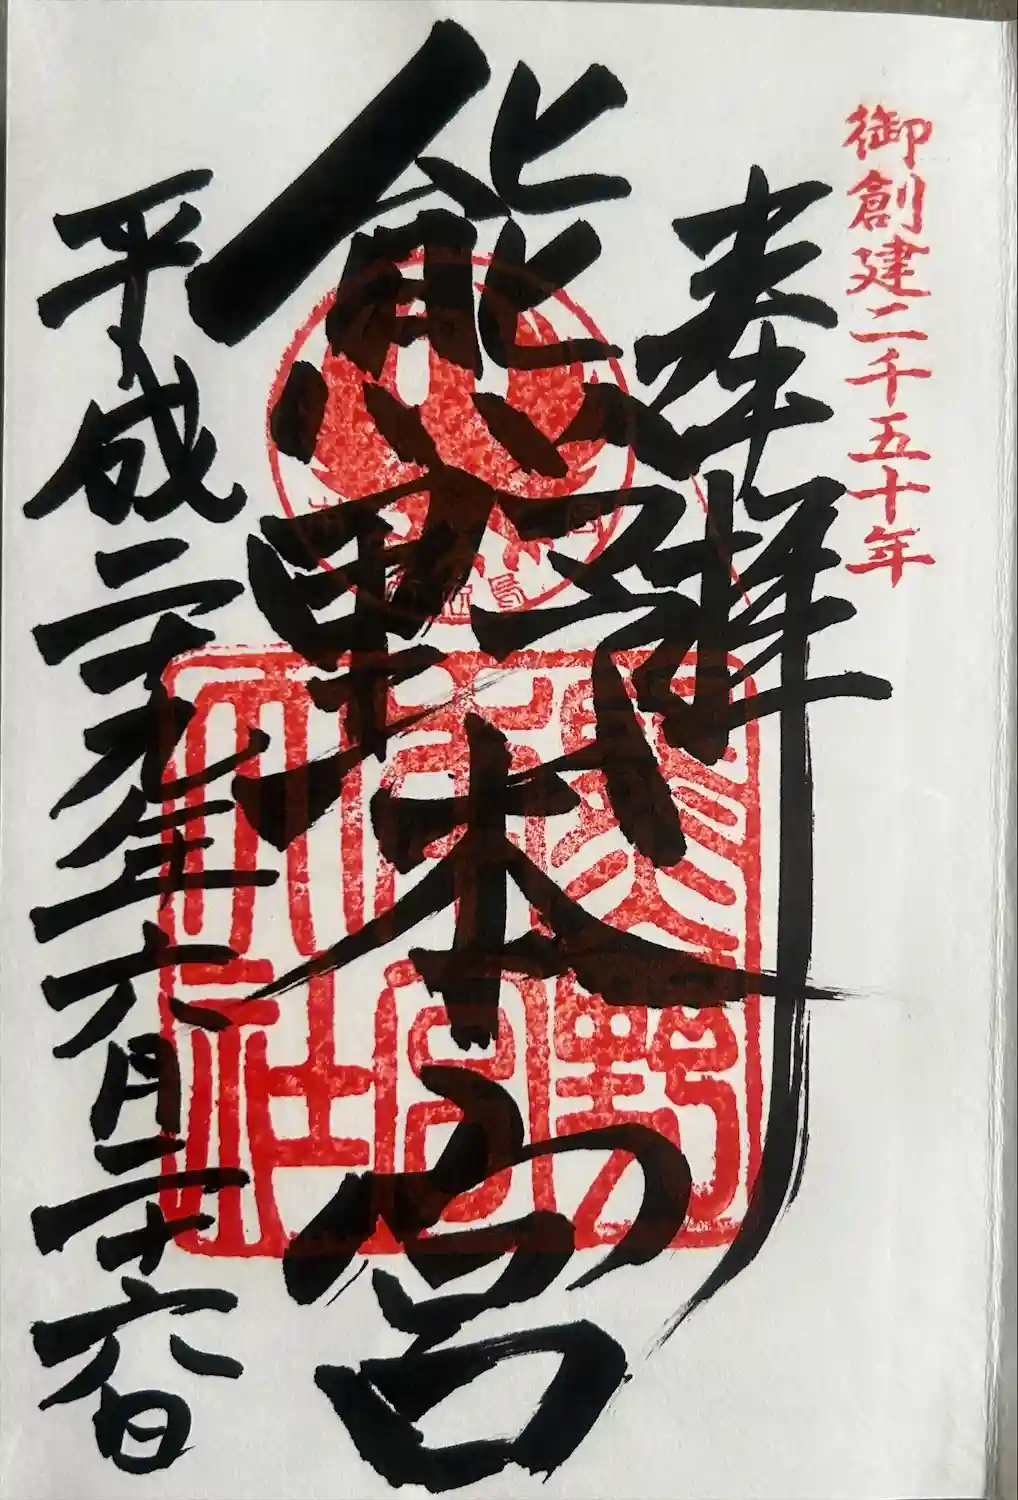 御創建二千五十年
奉拝
熊野本宮
熊野本宮大社
平成二十九年六月二十六日